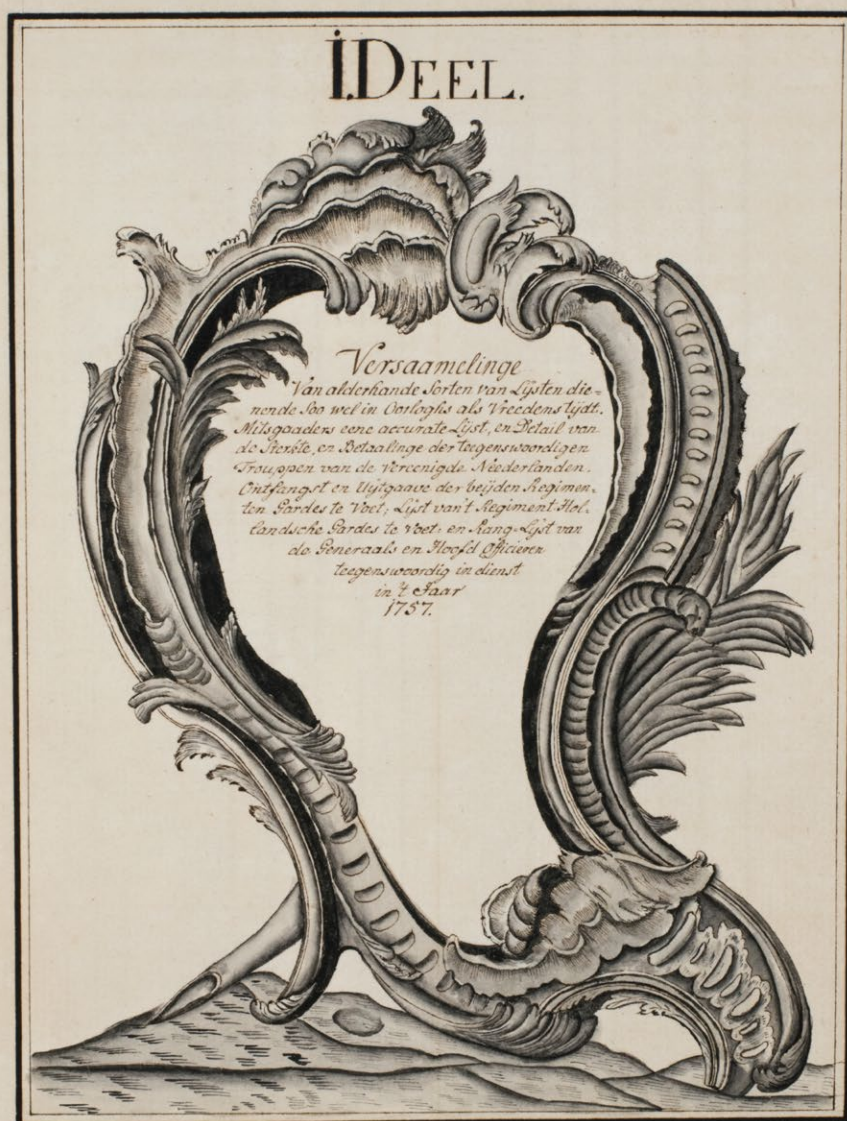 I. DEEL.
Versaamelinge
Van alderhande Sorten van Lijsten die=
nende Soo wel in Oorloghs als Vreedens tijdt.
Mitsgaaders eene accurate Lijst, en Detail van
de Sterkte, en Betaalinge der teegenswoordigen
Trouppen van de Vereenigde Neederlanden.
Ontfangst en Uijtgaave der beijden Regimen=
ten Gardes te Voet; Lijst van't Regiment Hol=
landsche Gardes te Voet: en Rang=Lijst van
de Generaals en Hoofd Officieren
teegenswoordig in dienst
in 't Jaar
1757.